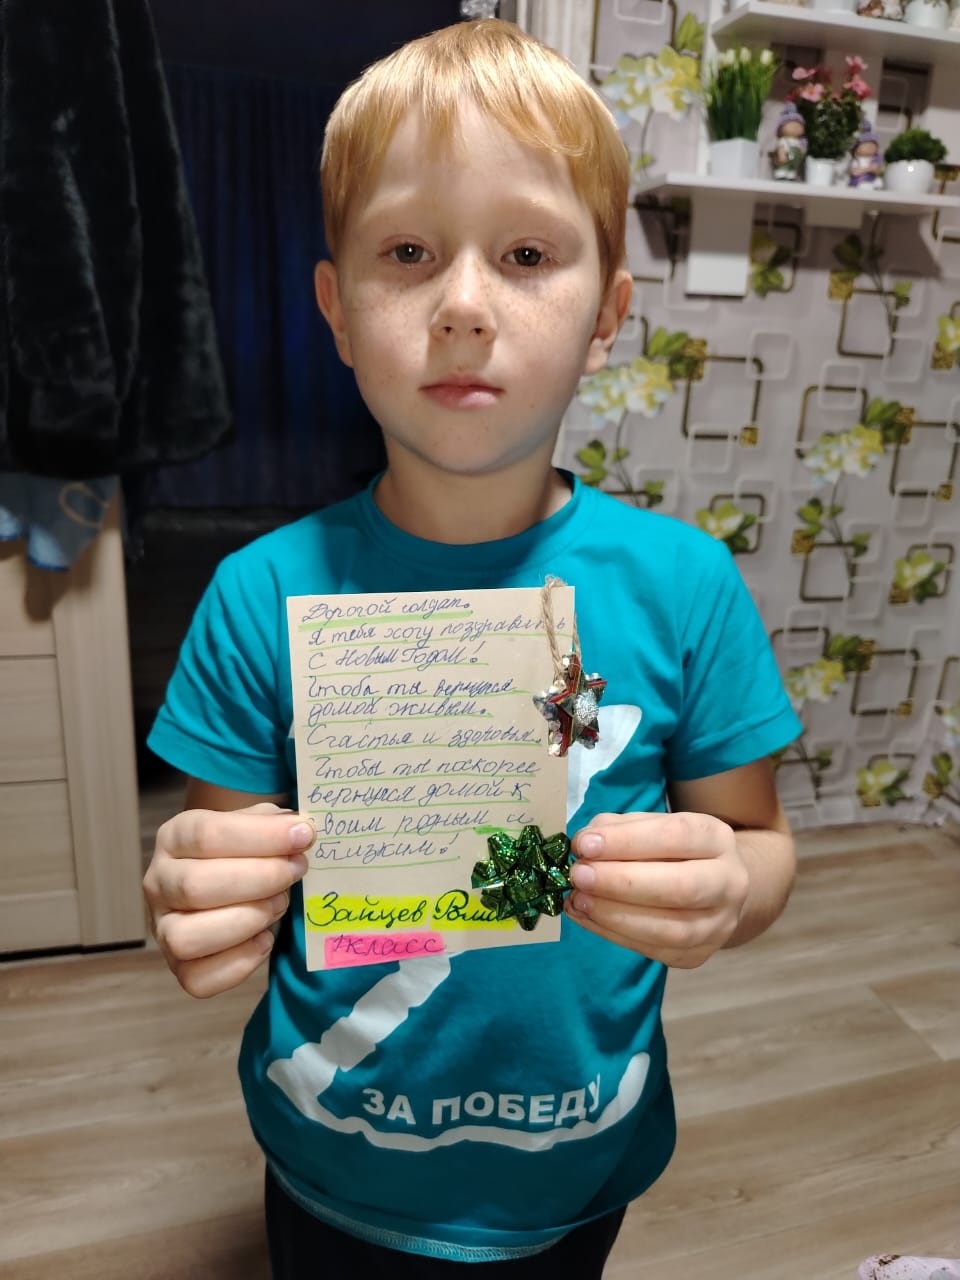 Дорогой солдат.
Я тебя хочу поздравить
С Новым Годом!
Чтобы ты вернулся
домой живым.
Счастья и здоровья.
Чтобы ты поскорее
вернулся домой к
своим родным и
близким!
Зайцев
1класс
ЗА ПОБЕДУ